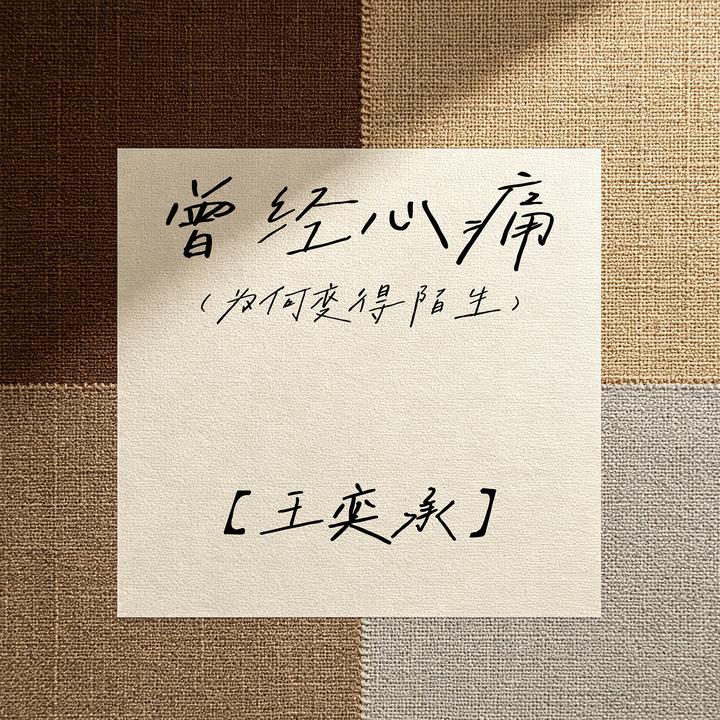 曾经心痛
（为何变得陌生）
【王奕承】